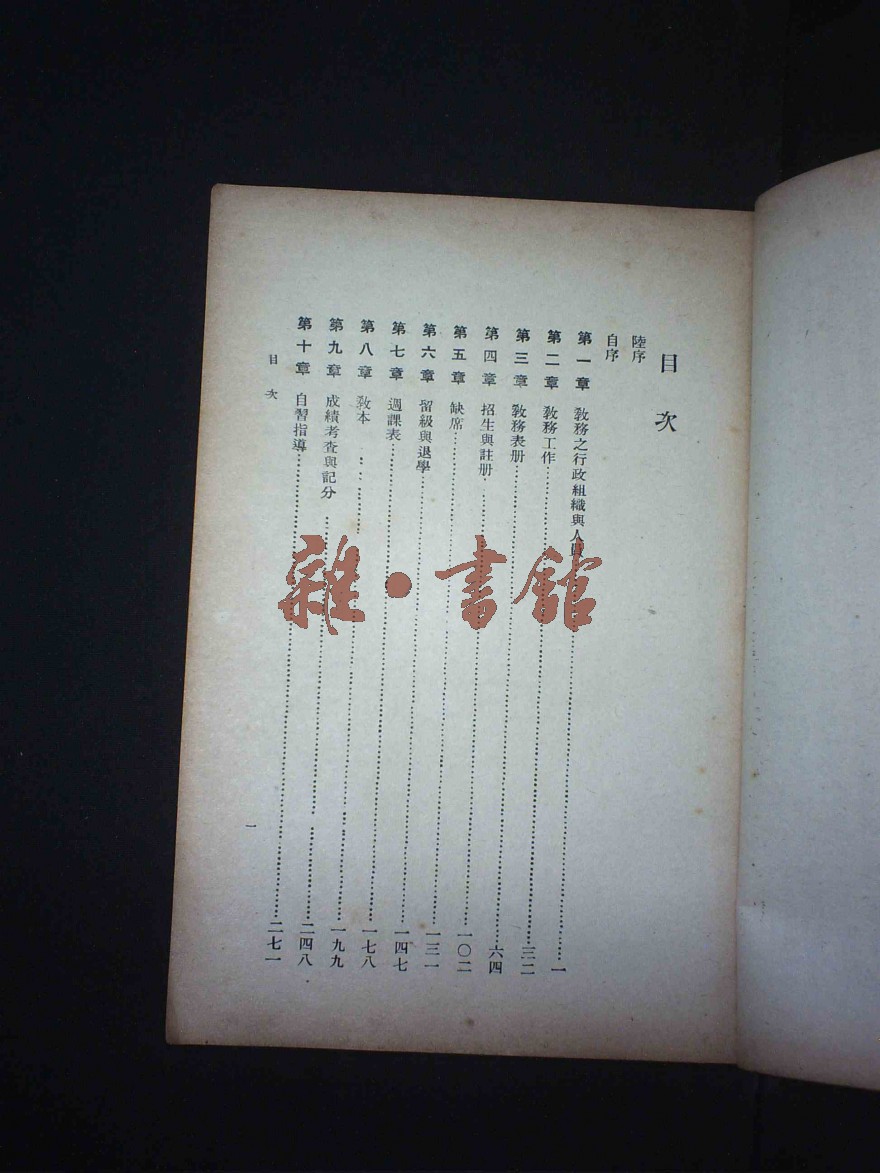 目次
陸序
自序
第一章 教務之行政組織與人員……一
第二章 教務工作……三二
第三章 教務表册……六四
第四章 招生與註册……一〇二
第五章 缺席……一三一
第六章 留級與退學……一四七
第七章 週課表……一七八
第八章 教本……一九九
第九章 成績考查與記分……二四八
第十章 自習指導……二七一
目次
一
雜·書館